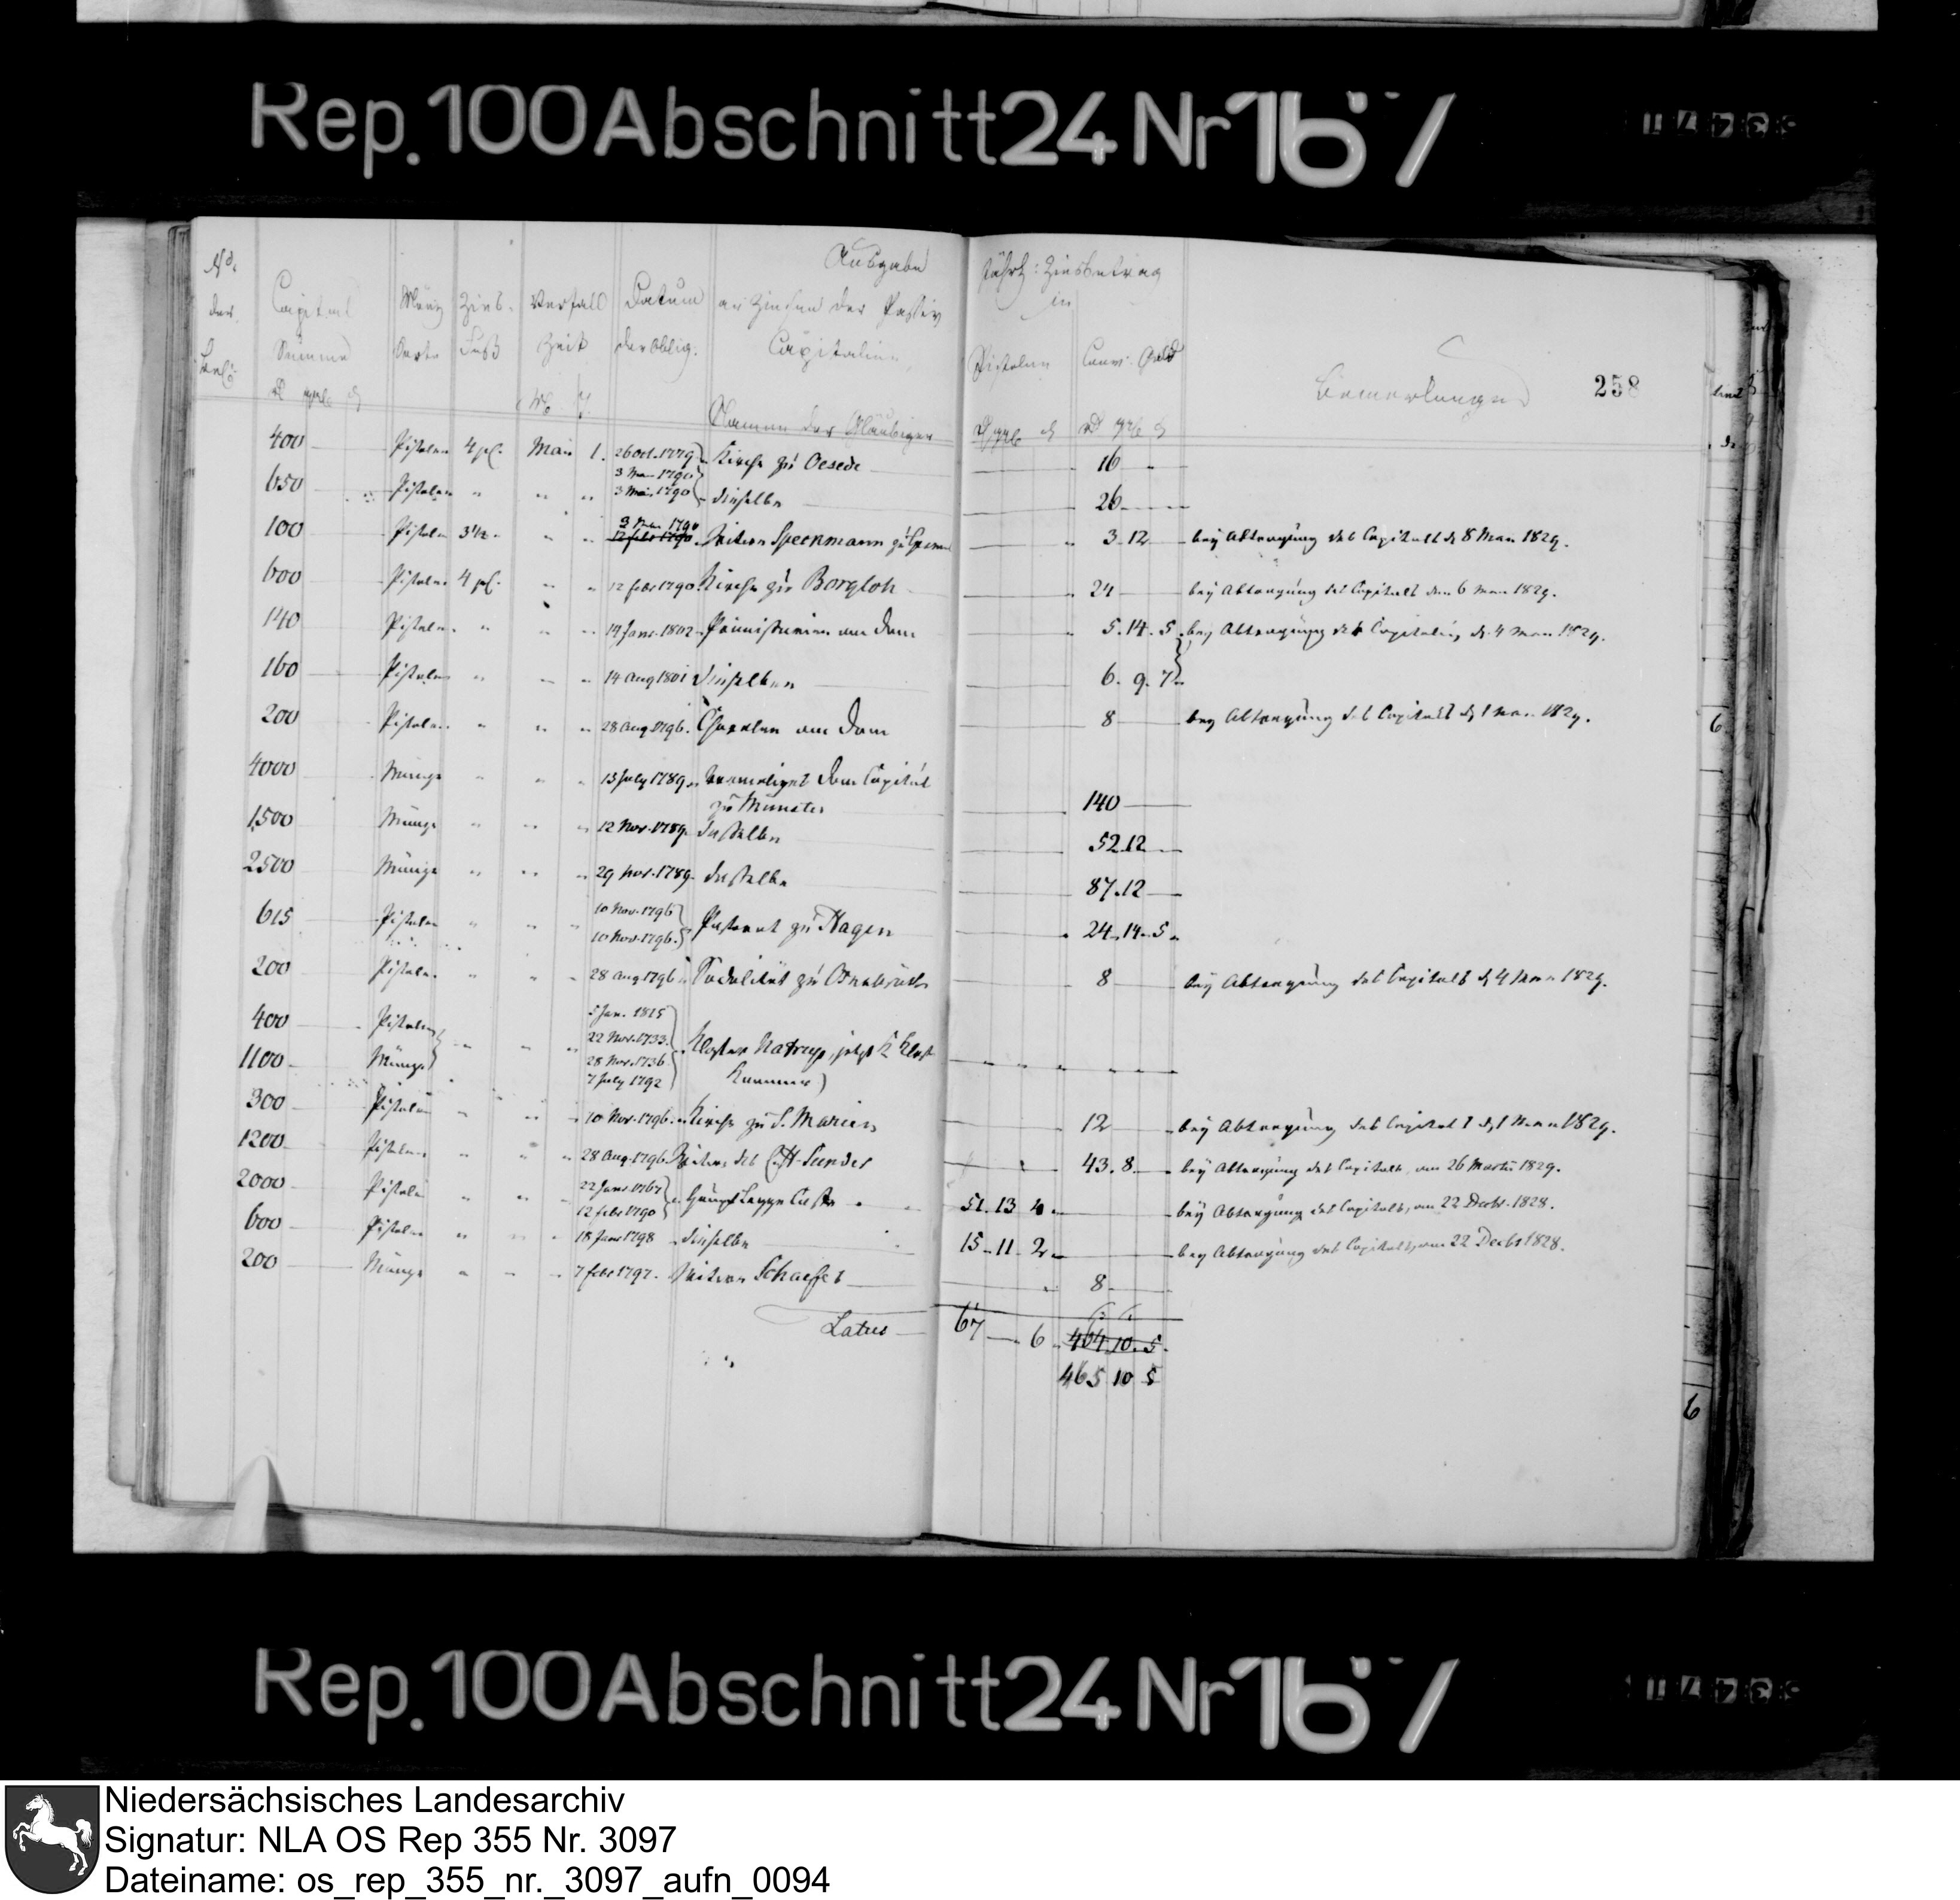 Rep.100Abschnitt24 Nr167
No.
der
Capital
Summe
Münz
Sorte
Zins-
Fuß
Verfall
Zeit
Datum
der Oblig.
Ausgabe
an Zinsen der Passiv
Capitalien
Namen der Gläubiger
Jährl: Zinsbetrag
in
Pistolen
Conv: Geld
Bemerkungen
258
400 Pistolen 4 pC. Mai 1. 26 Oct. 1779 Kirche zu Oesede 16
3 Mai 1790
650 Pistolen " " " 3 Mai 1790 dieselbe 26
3 Mai 1790
100 Pistolen 3 1/2 " " 12 febr 1790 Witwe Speckmann zu 3 12 bey Abtragung des Capitals d. 8 May 1829.
600 Pistolen 4 pC. " " 12 febr 1790 Kirche zu Borgloh 24 bey Abtragung des Capitals den 6 May 1829.
140 Pistolen " " " 14 Janr. 1802 am Dom 5. 14. 5 bey Abtragung der Capitalien d. 4 May 1829.
160 Pistolen " " " 14 Aug 1801 dieselben 6. 9. 7
200 Pistolen " " " 28 Aug 1796. Choralen am Dom 8 bey Abtragung des Capitals d. 1 May 1829.
4000 Münze " " " 13 July 1789 Dom Capitul
zu Münster 140
1500 Münze " " " 12 Nov. 1789 dasselbe 52 12
2500 Münze " " " 29 Nov. 1789 dasselbe 87. 12
615 Pistolen " " " 10 Nov. 1796 Pastorat zu Hagen 24. 14. 5
10 Nov. 1796.
200 Pistolen " " " 28 Aug 1796 Sodalität zu Osnabrück 8 bey Abtragung des Capitals d. 4 May 1829.
5 Jan. 1815
400 Pistolen 22 Nov. 1733. Kloster Natrup, jetzt
1100 Münze " " " 28 Nov. 1736
7 July 1792 Kammer)
300 Pistolen " " " 10 Nov. 1796. Kirche zu S. Marien 12 bey Abtragung des Capitals d. 1 May 1829.
1200 Pistolen " " " 28 Aug. 1796 Witwe des Sander 43. 8. bey Abtragung des Capitals, am 26 Martii 1829.
2000 Pistolen " " " 22 Janr 1767 51. 13 4 bey Abtragung des Capitals, am 22 Decbr. 1828.
12 febr 1790
600 Pistolen " " " 18 Janr 1798 dieselbe 15. 11. 2 bey Abtragung des Capitals, am 22 Decbr 1828.
200 Münze " " " 7 febr 1797. Witwe Schaeffer 8
Latus 67 6 464 10. 5.
465 10 5
Rep.100Abschnitt24 Nr167
Niedersächsisches Landesarchiv
Signatur: NLA OS Rep 355 Nr. 3097
Dateiname: os_rep_355_nr._3097_aufn_0094